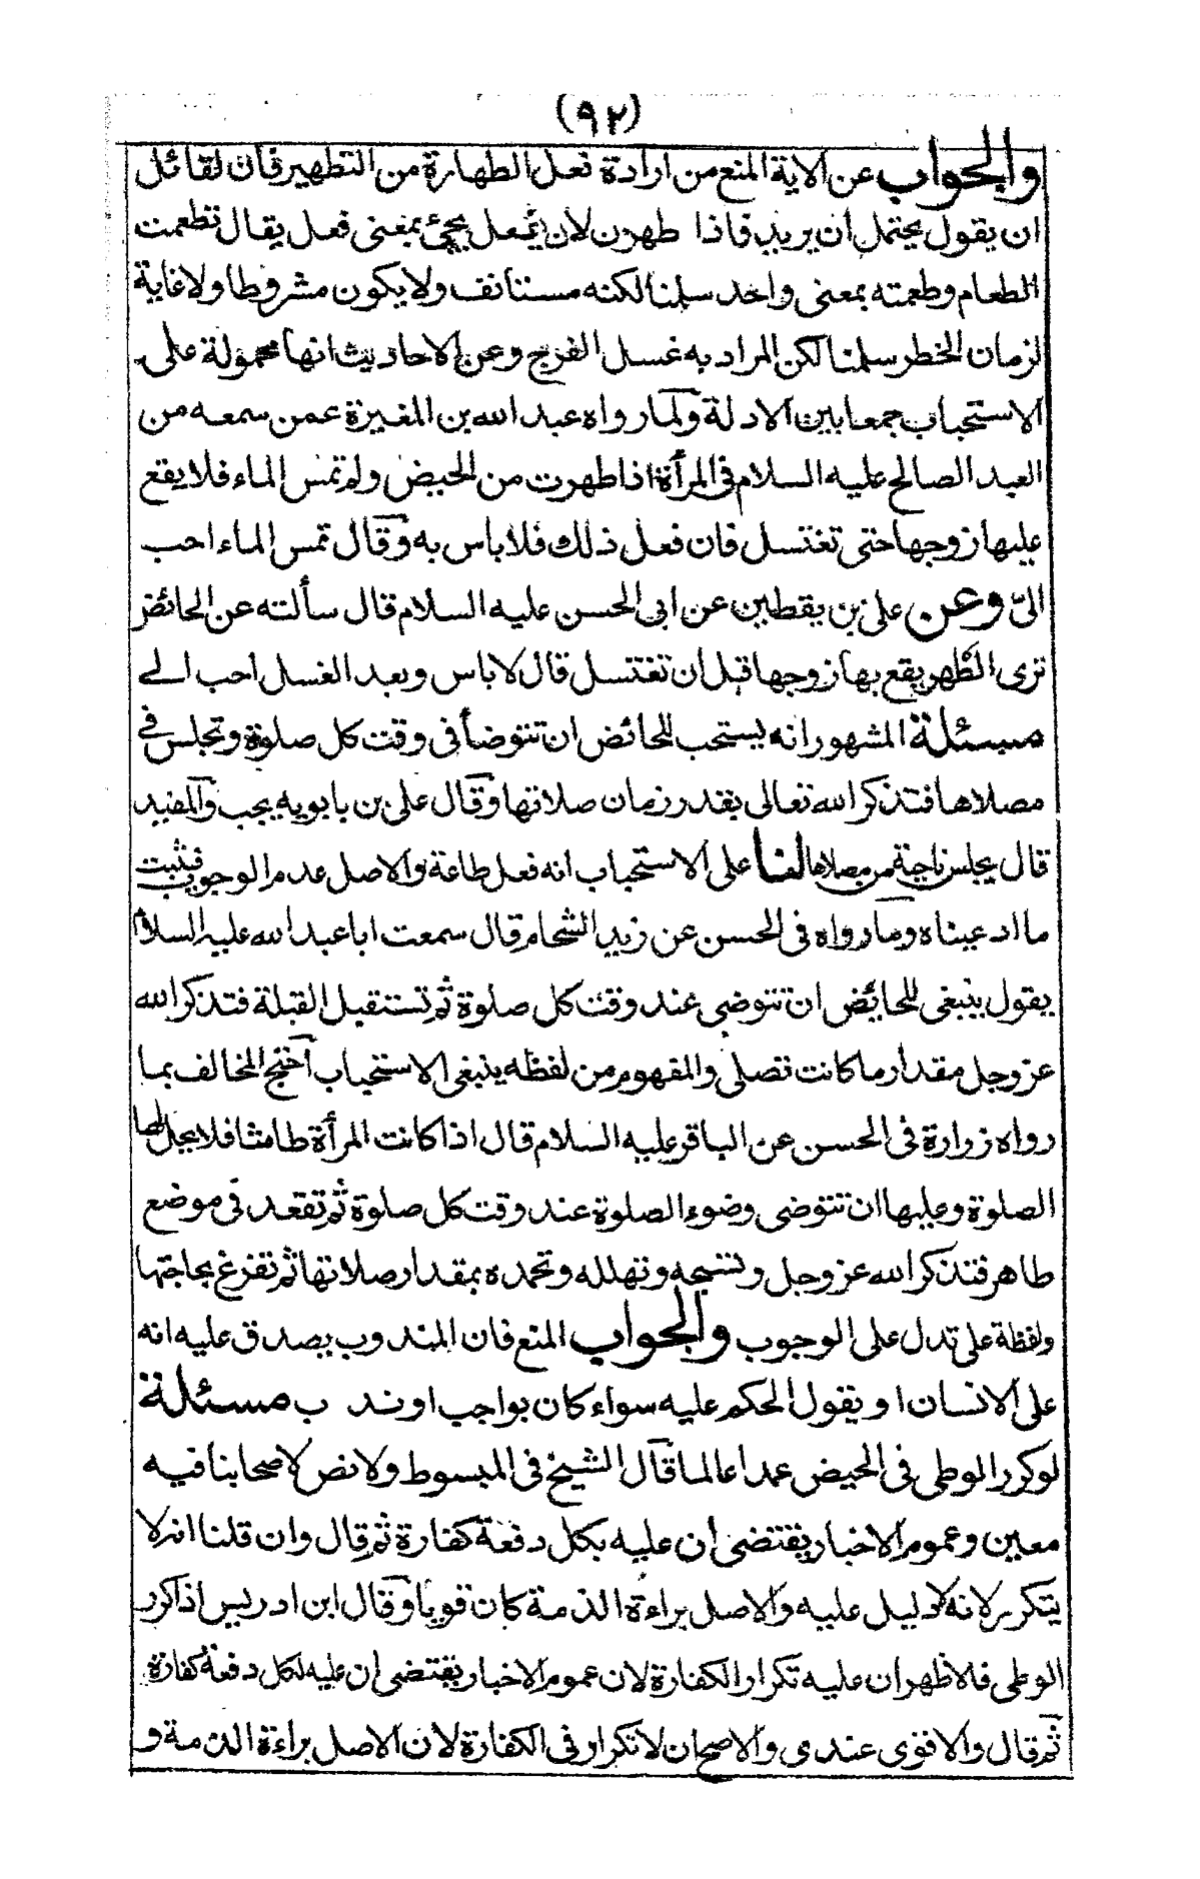 (٩٢)
والجواب عن الاية المنع من ارادة فعل الطهارة من التطهير فان لقائل
ان يقول يحتمل ان يريد فاذا طهرن لان تفعل يجيء بمعنى فعل يقال تطعمت
الطعام وطعمته بمعنى واحد سلمنا لكنه مستانف ولا يكون مشروطا ولا غاية
لزمان الخطر سلمنا لكن المراد به غسل الفرج وعن الاحاديث انها محمولة على
الاستحباب جمعا بين الادلة ولما رواه عبد الله بن المغيرة عمن سمعه من
العبد الصالح عليه السلام في المرأة اذا طهرت من الحيض ولم تمس الماء فلا يقع
عليها زوجها حتى تغتسل فان فعل ذلك فلا باس به وقال تمس الماء احب
الىّ وعن على بن يقطين عن ابى الحسن عليه السلام قال سألته عن الحائض
ترى الطهر يقع بها زوجها قبل ان تغتسل قال لا باس وبعد الغسل احب الي
مسئلة المشهور انه يستحب للحائض ان تتوضأ فى وقت كل صلوة وتجلس في
مصلاها فتذكر الله تعالى بقدر زمان صلاتها وقال على بن بابويه يجب والمفيد
قال يجلس ناحية من مصلاها لنا على الاستحباب انه فعل طاعة والاصل عدم الوجوب فيثبت
ما ادعيناه وما رواه فى الحسن عن زيد الشحام قال سمعت ابا عبد الله عليه السلام
يقول ينبغى للحايض ان تتوضى عند وقت كل صلوة ثم تستقبل القبلة فتذكر الله
عز وجل مقدار ما كانت تصلى والمفهوم من لفظه ينبغى الاستحباب احتج المخالف بما
رواه زرارة فى الحسن عن الباقر عليه السلام قال اذا كانت المرأة طامثا فلا يحل لها
الصلوة وعليها ان تتوضى وضوء الصلوة عند وقت كل صلوة ثم تقعد فى موضع
طاهر فتذكر الله عز وجل وتسبحه وتهلله وتحمده بمقدار صلاتها ثم تفرغ بحاجتها
ولفظة على تدل على الوجوب والجواب المنع فان المندوب يصدق عليه انه
على الانسان او يقول الحكم عليه سواء كان بواجب او ند ب مسئلة
لو كرر الوطى فى الحيض عمدا عالما قال الشيخ فى المبسوط ولا نص لاصحابنا فيه
معين وعموم الاخبار يقتضى ان عليه بكل دفعة كفارة ثم قال وان قلنا انه لا
يتكرر لانه لا دليل عليه والاصل براءة الذمة كان قويا وقال ابن ادريس اذا كرر
الوطى فالاظهر ان عليه تكرار الكفارة لان عموم الاخبار يقتضى ان عليه لكل دفعة كفارة
ثم قال والاقوى عندى والاصح ان لا تكرار فى الكفارة لان الاصل براءة الذمة و